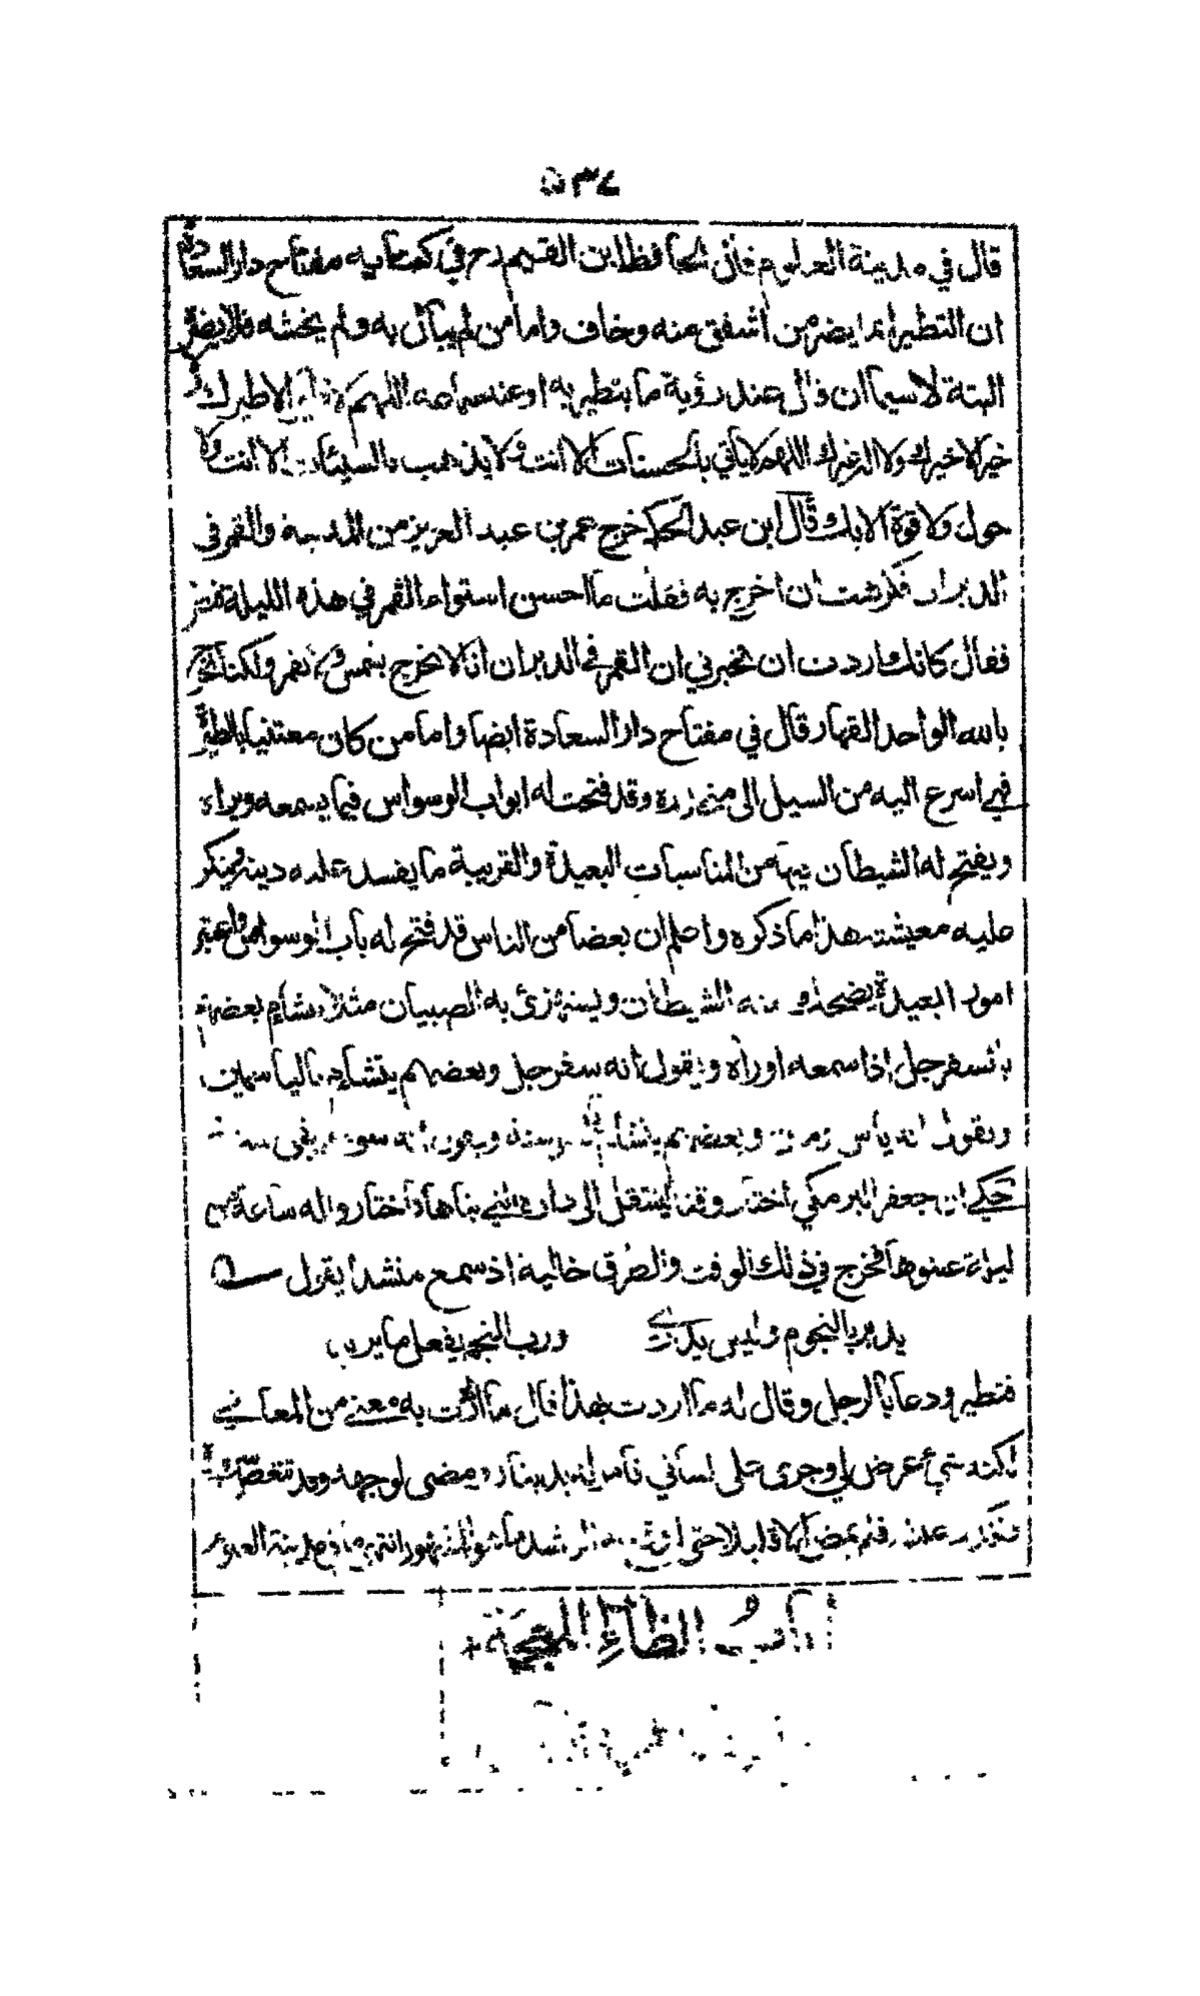 ٥٣٧
قال في مدينة العلوم قال الحافظ ابن القيم رح في كتابه مفتاح دار السعادة
ان التطير انما يضر من اشفق منه وخاف واما من لم يبال به ولم يخشه فلا يضره
البتة لا سيما ان قال عند رؤية ما يتطير به او عند سماعه اللهم لا طير الا طيرك ولا
خير الا خيرك ولا اله غيرك اللهم لا يأتي بالحسنات الا انت ولا يذهب بالسيئات الا انت ولا
حول ولا قوة الا بك قال ابن عبد الحكم خرج عمر بن عبد العزيز من المدينة والقمر في
الدبران فكرهت ان اخرج به فقلت ما احسن استواء القمر في هذه الليلة فنظر
فقال كانك اردت ان تخبرني ان القمر في الدبران انا لا نخرج بشمس ولا بقمر ولكنا نخرج
بالله الواحد القهار قال في مفتاح دار السعادة ايضا واما من كان معتنيا بالطيرة
فهي اسرع اليه من السيل الى منحدره وقد فتحت له ابواب الوسواس فيما يسمعه ويراه
ويفتح له الشيطان فيها من المناسبات البعيدة والقريبة ما يفسد عليه دينه وينكر
عليه معيشته هذا ما ذكره واعلم ان بعضا من الناس قد فتح له باب الوسواس واعتبر
امور البعيدة يضحك منه الشيطان ويستهزئ به الصبيان مثلا يتشاءم بعضهم
بالسفرجل اذا سمعه او رآه ويقول انه سفر جل وبعضهم يتشاءم بالياسمين
ويقول انه ياس ومين وبعضهم يتشاءم بسوسنة ويقول انه سوء يبقى سنة
حكي ان جعفر البرمكي اختار وقتا لينتقل الى داره التي بناها فاختاروا له ساعة من
ليلة عينوها فخرج في ذلك الوقت والطرق خالية اذ سمع منشدا يقول
يدبر بالنجوم وليس يدري ورب النجم يفعل ما يريد
فتطير ودعا بالرجل وقال له ما اردت بهذا قال ما اردت به معنى من المعاني
لكنه شيء عرض لي وجرى على لساني فامر له بدينار ومضى لوجهه وقد تنغص
فلم يمض الا قليلا حتى
باب الظاء المعجمة